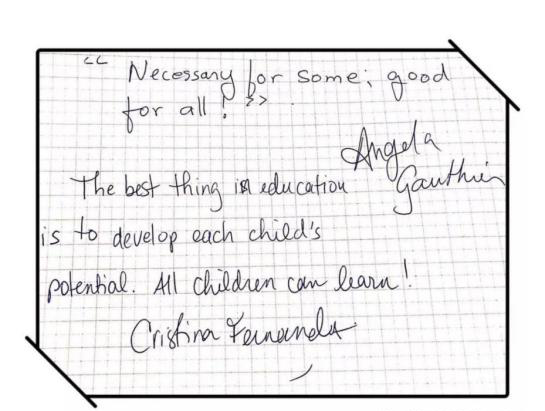 " Necessary for some; good
for all! "
Angela
Gauthier
The best thing in education
is to develop each child's
potential. All children can learn!
Cristina Fernandes